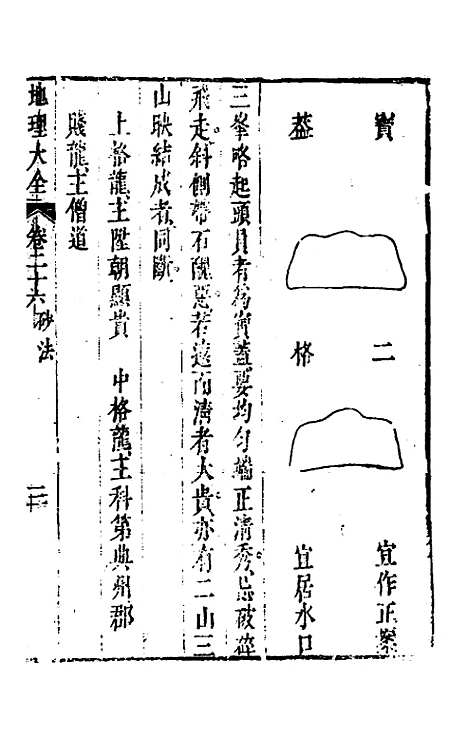 寳　二　宜作正案
葢　格　宜居水口
三峯略起頭員者爲寳蓋要均匀端正清秀忌破碎
飛走斜側帶石醜惡若遠而濟者大貴亦有二山三
山映結成者同斷
上格龍主陞朝顯貴　中格龍主科第典州郡
賤龍主僧道
地理大全　卷二十六　砂法　二十